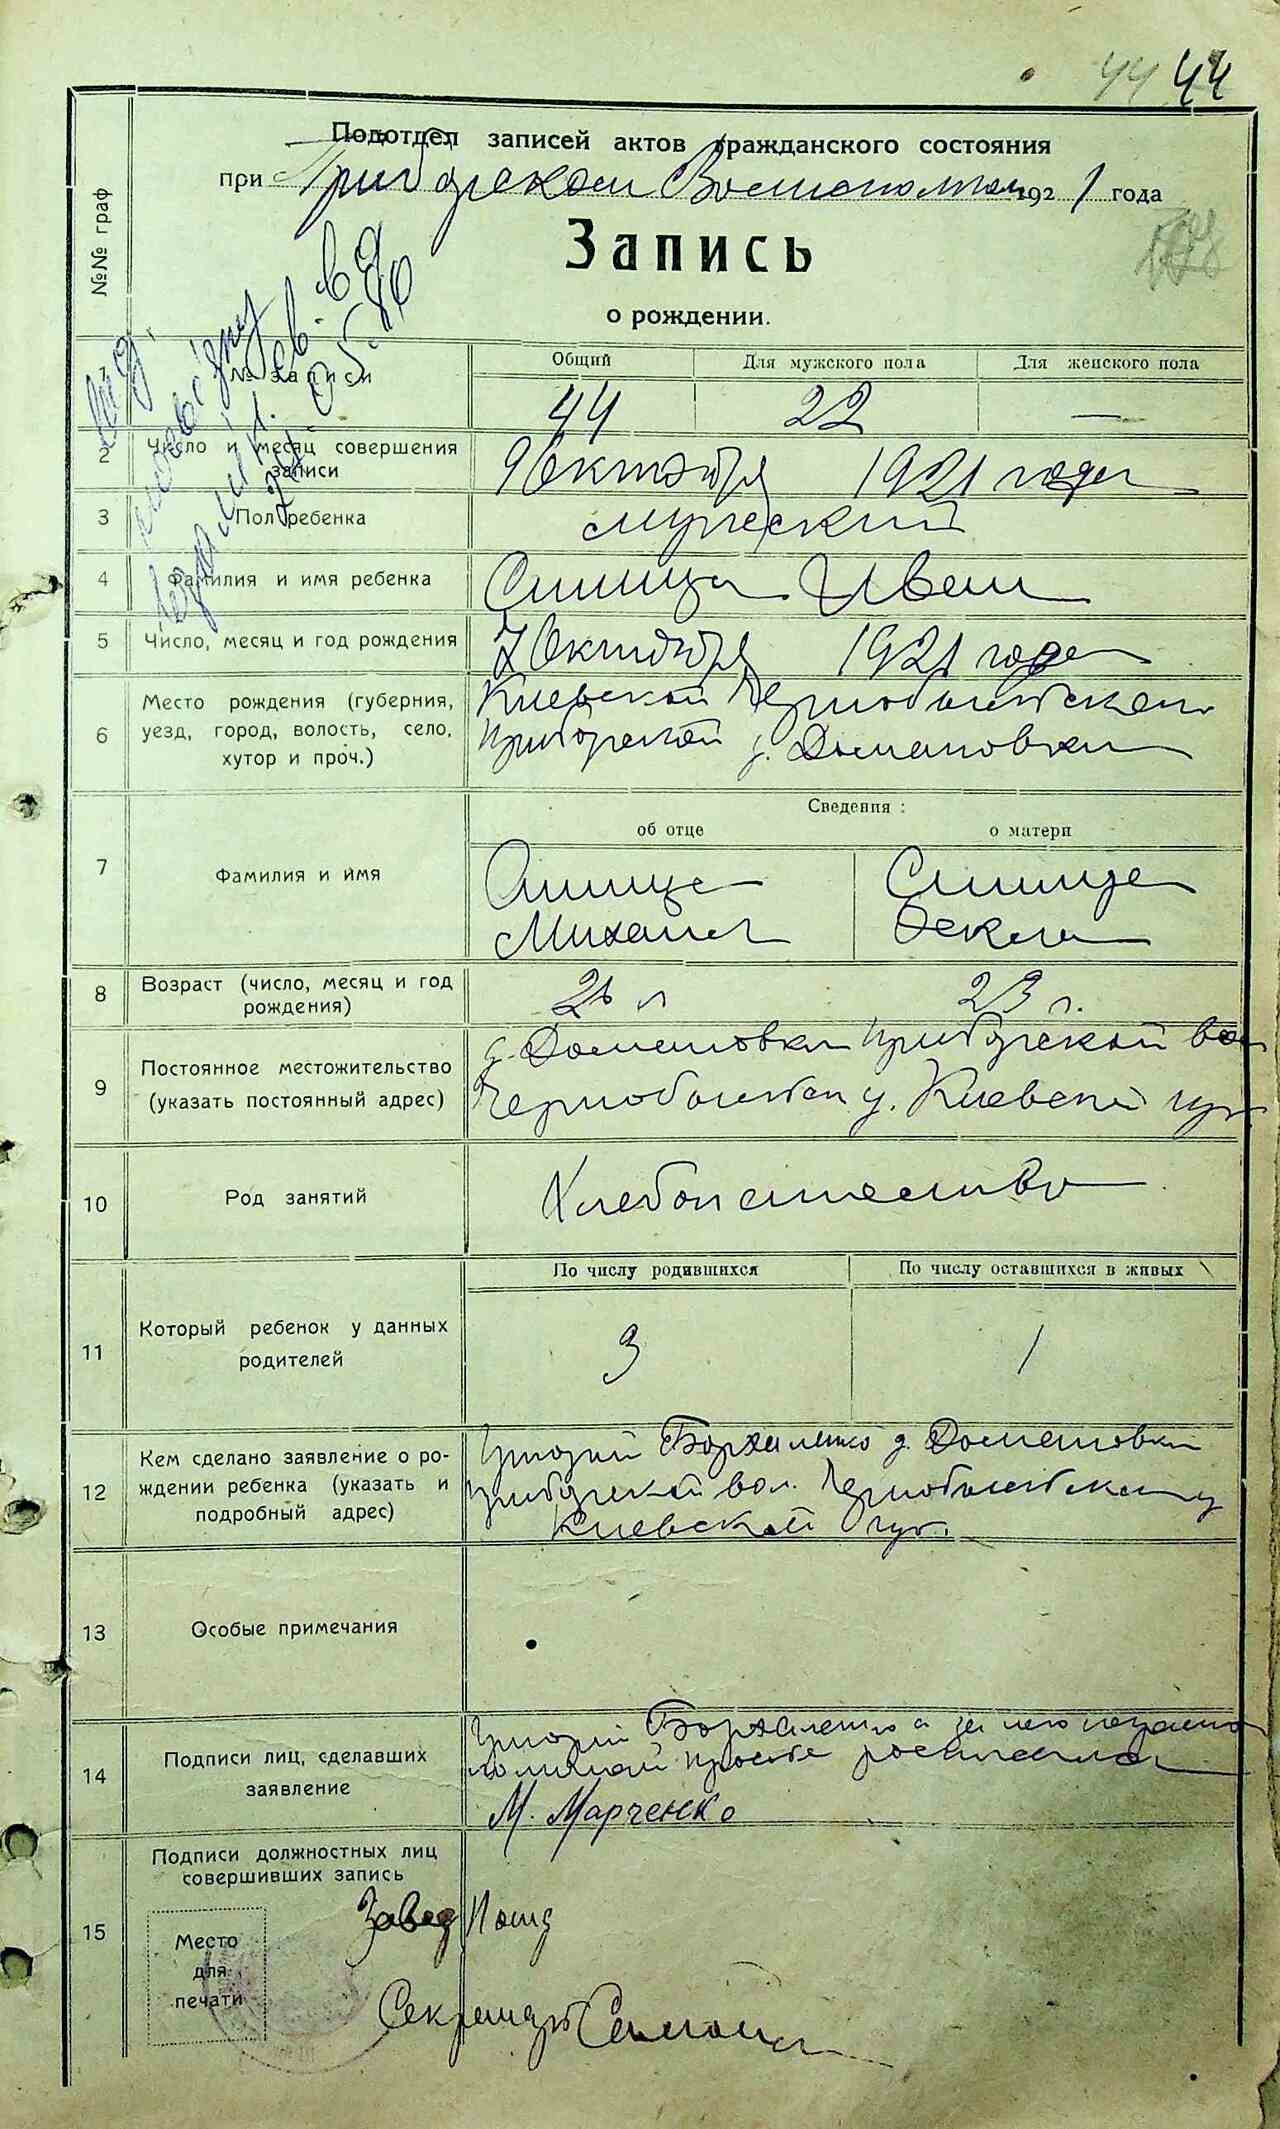 44 44
Подотдел записей актов гражданского состояния
при Прибурском Волисполкоме 1921 года
№№ граф
Запись
о рождении.
Общий Для мужского пола Для женского пола
1 № записи 44 22 —
2 Число и месяц совершения
записи
9 Октября 1921 года
3 Пол ребенка мужеский
4 Фамилия и имя ребенка Синица Иван
5 Число, месяц и год рождения 7 Октября 1921 года
6 Место рождения (губерния,
уезд, город, волость, село,
хутор и проч.)
Киевской Чернобыльского
Прибурской д. Домановки
Сведения :
об отце о матери
7 Фамилия и имя
Синица Синица
Михаил Фекла
8 Возраст (число, месяц и год
рождения)
26 л 23 г.
9 Постоянное местожительство
(указать постоянный адрес)
д. Домановки Прибурской вол
Чернобыльск у. Киевской губ
10 Род занятий Хлебопашество
По числу родившихся По числу оставшихся в живых
11 Который ребенок у данных
родителей
3 1
12 Кем сделано заявление о ро-
ждении ребенка (указать и
подробный адрес)
Григорий Борхаленко д. Домановки
Прибурской вол. Чернобыльского у
Киевской губ.
13 Особые примечания
14 Подписи лиц, сделавших
заявление
Григорий Борхаленко а за него неграмот
по личной просьбе росписался
М. Марченко
15 Подписи должностных лиц
совершивших запись
Место
для
печати
Завед Подд
Секретарь